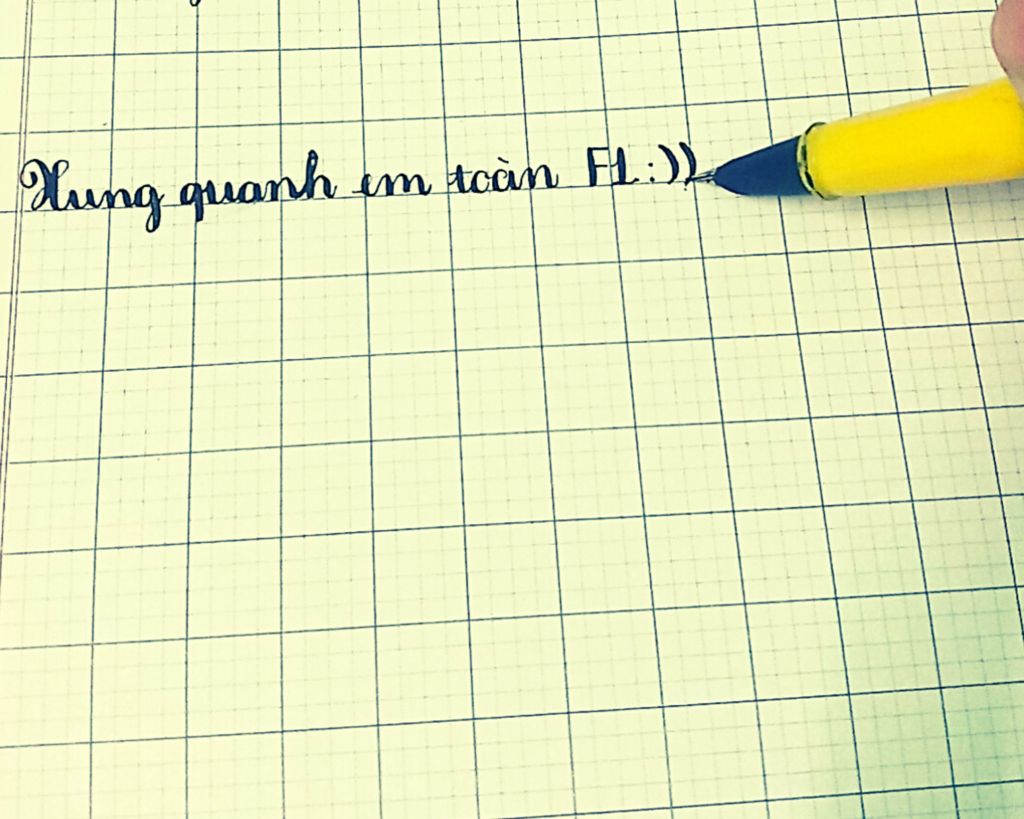 Xung quanh em toàn F1:))